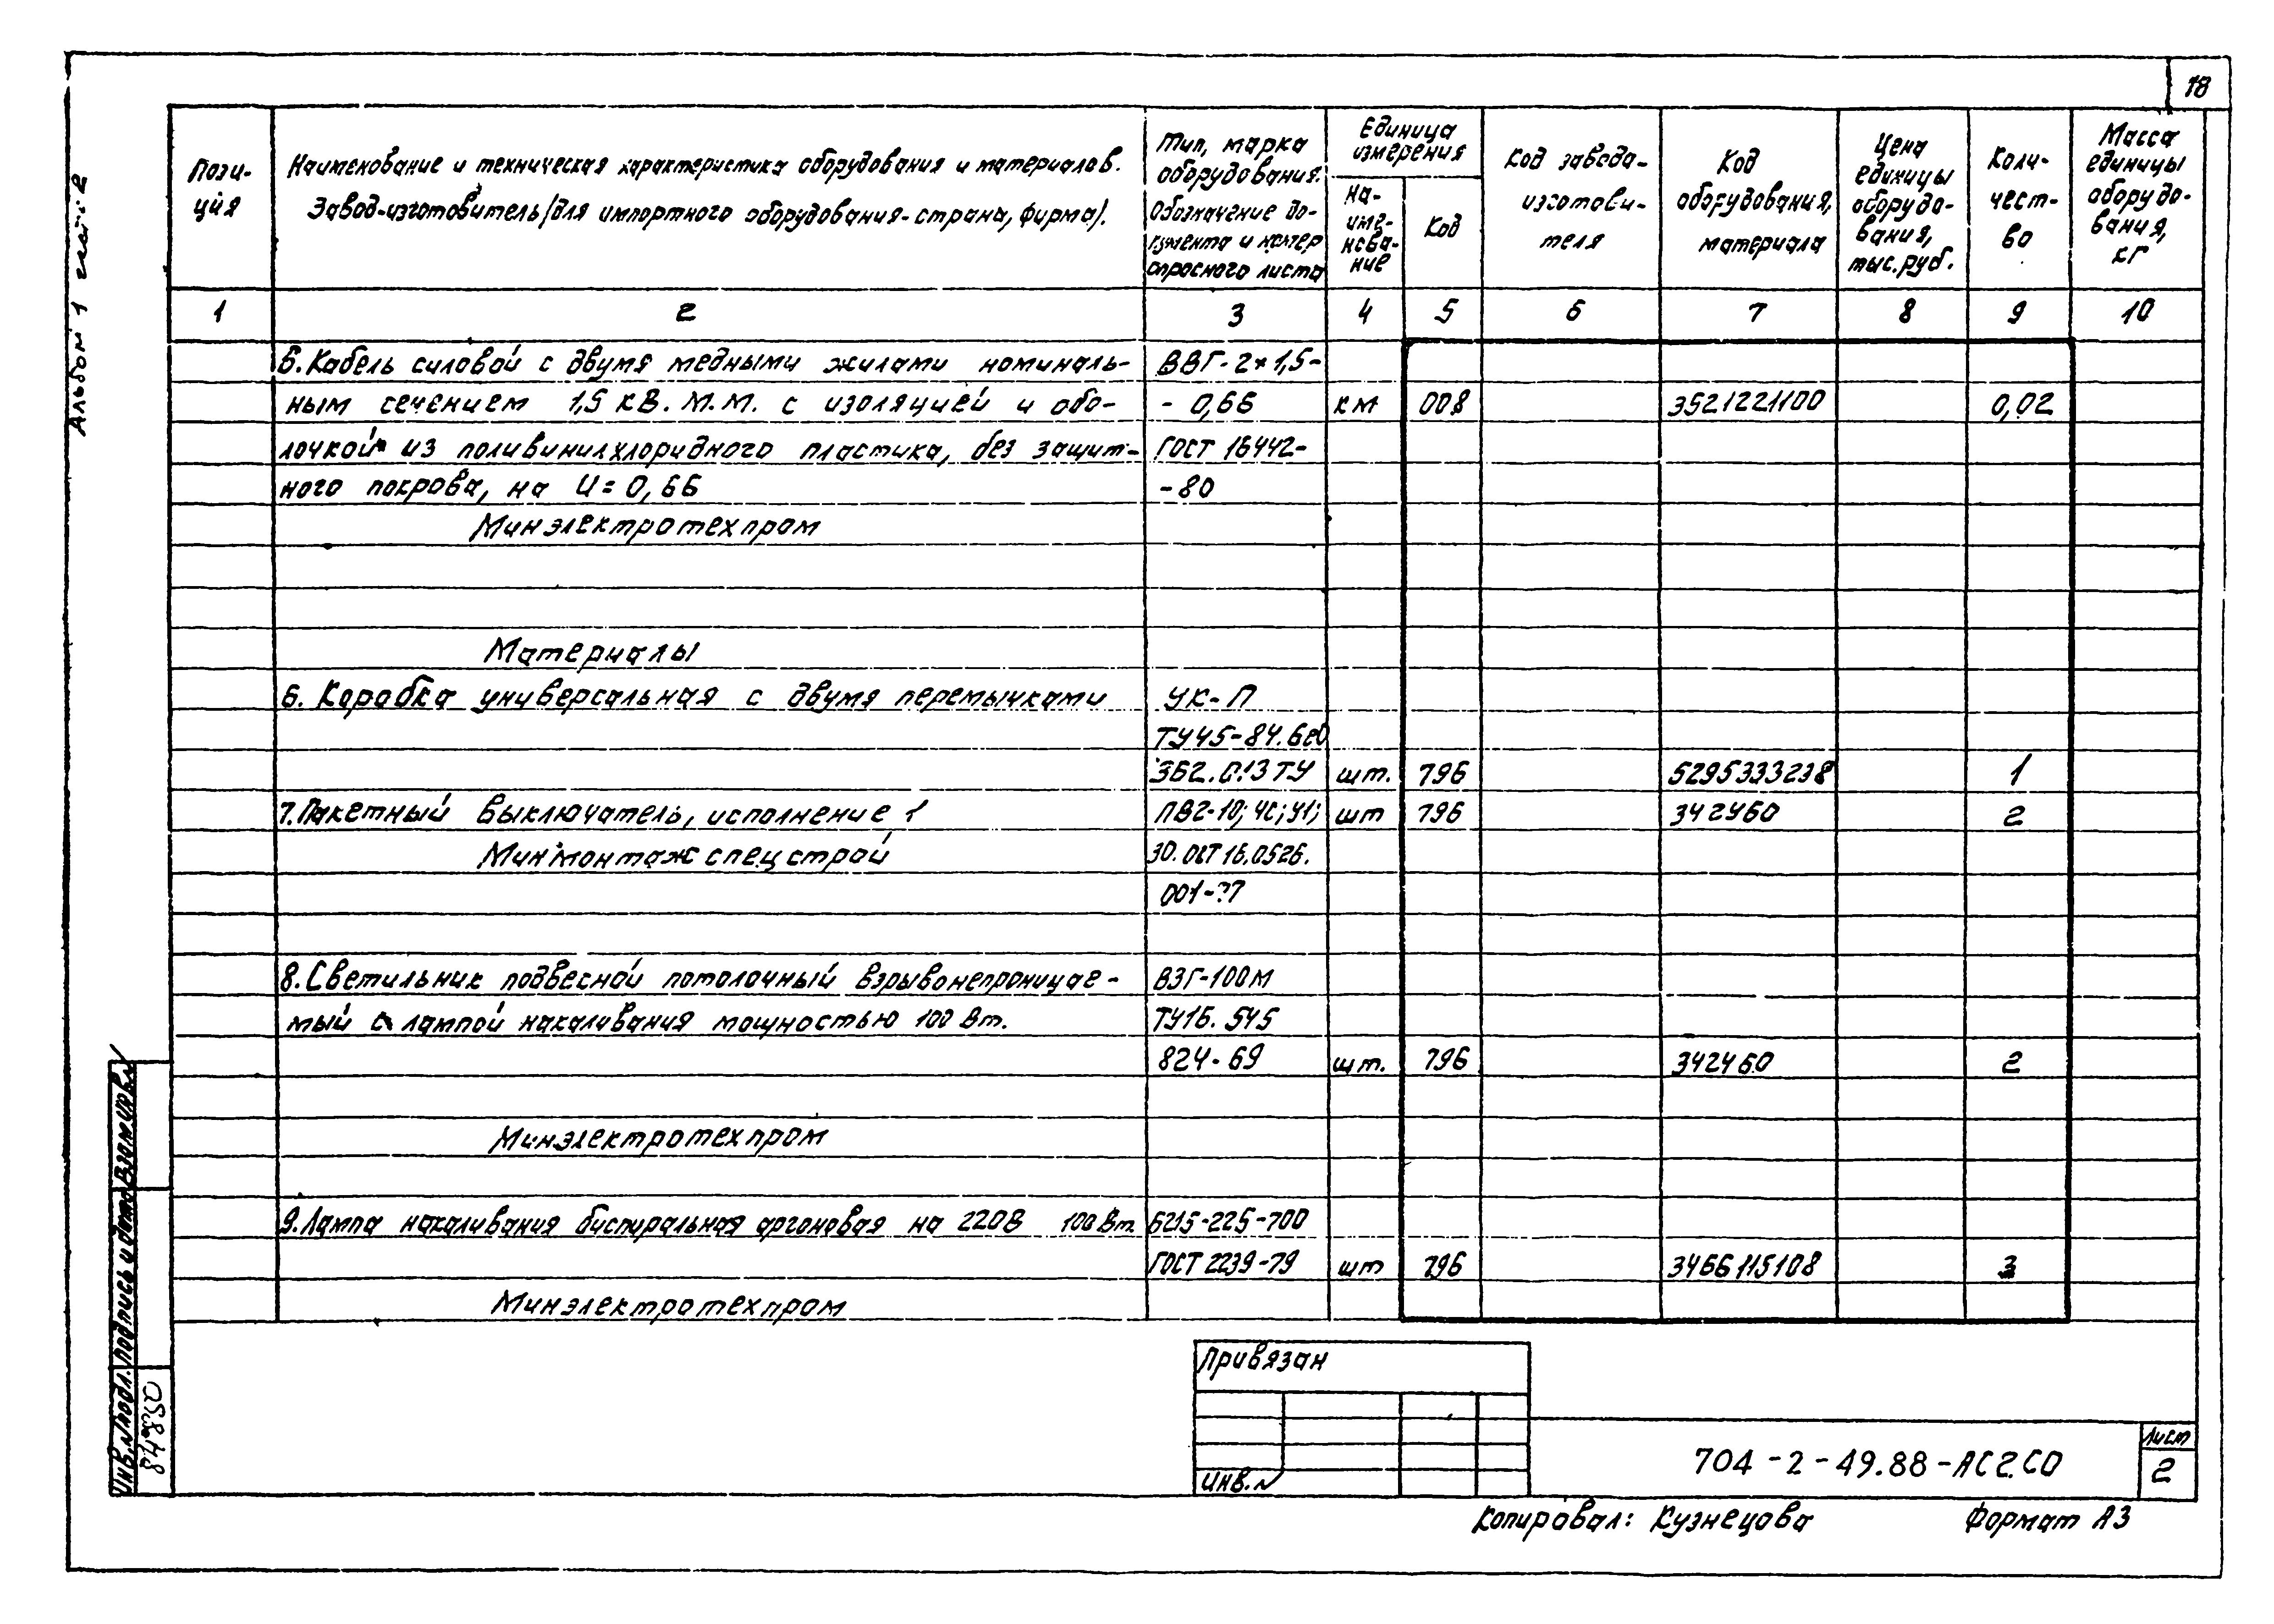 18
Альбом 1
Пози-
ция
Наименование и техническая характеристика оборудования и материалов.
Завод-изготовитель/для импортного оборудования-страна, фирма/.
Тип, марка
оборудования.
Обозначение до-
кумента и номер
опросного листа
Единица
измерения
На-
име-
нова-
ние
Код
Код завода-
изготови-
теля
Код
оборудования,
материала
Цена
единицы
оборудо-
вания,
тыс.руб.
Коли-
чест-
во
Масса
единицы
оборудо-
вания,
кг
1 2 3 4 5 6 7 8 9 10
Кабель силовой с двумя медными жилами номиналь- ВВГ-2×1,5-
ным сечением 1,5 кв.м.м. с изоляцией и обо- - 0,66 км 008 3521221100 0,02
лочкой из поливинилхлоридного пластика, без защит- ГОСТ 16442-
ного покрова, на U=0,66 -80
Минэлектротехпром
Материалы
6. Коробка универсальная с двумя перемычками УК-П
ТУ45-84.6е0
362.013ТУ шт. 796 5295333238 1
7. Пакетный выключатель, исполнение 1 ПВ2-10; шт 796 342460 2
Минмонтажспецстрой 30. ОСТ 16.0526.
8. Светильник подвесной потолочный взрывонепроницае- ВЗГ-100М
мый с лампой накаливания мощностью 100 Вт. ТУ16. 545
824-69 шт. 796 342460 2
Минэлектротехпром
9. Лампа накаливания биспиральная аргоновая на 220В 100Вт Б215-225-100
ГОСТ 2239-79 шт 796 3466115108 3
Минэлектротехпром
Инв.N подл. Подпись и дата Взам.инв.N
Привязан
Инв.N
704-2-49.88-АС2.СО
Лист
2
Копировал: Кузнецова Формат А3